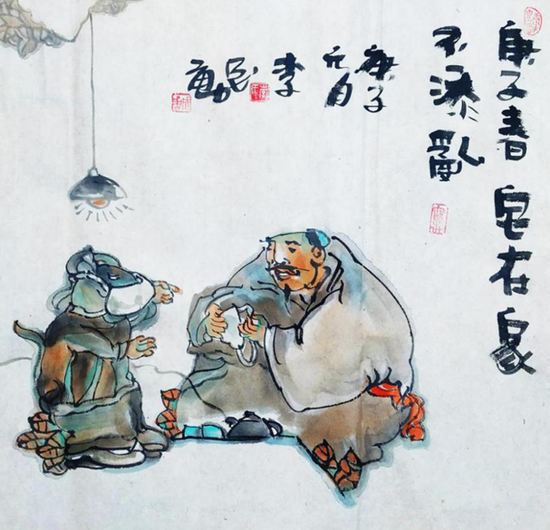 庚子春宅在家
不添亂
庚子
元月
李